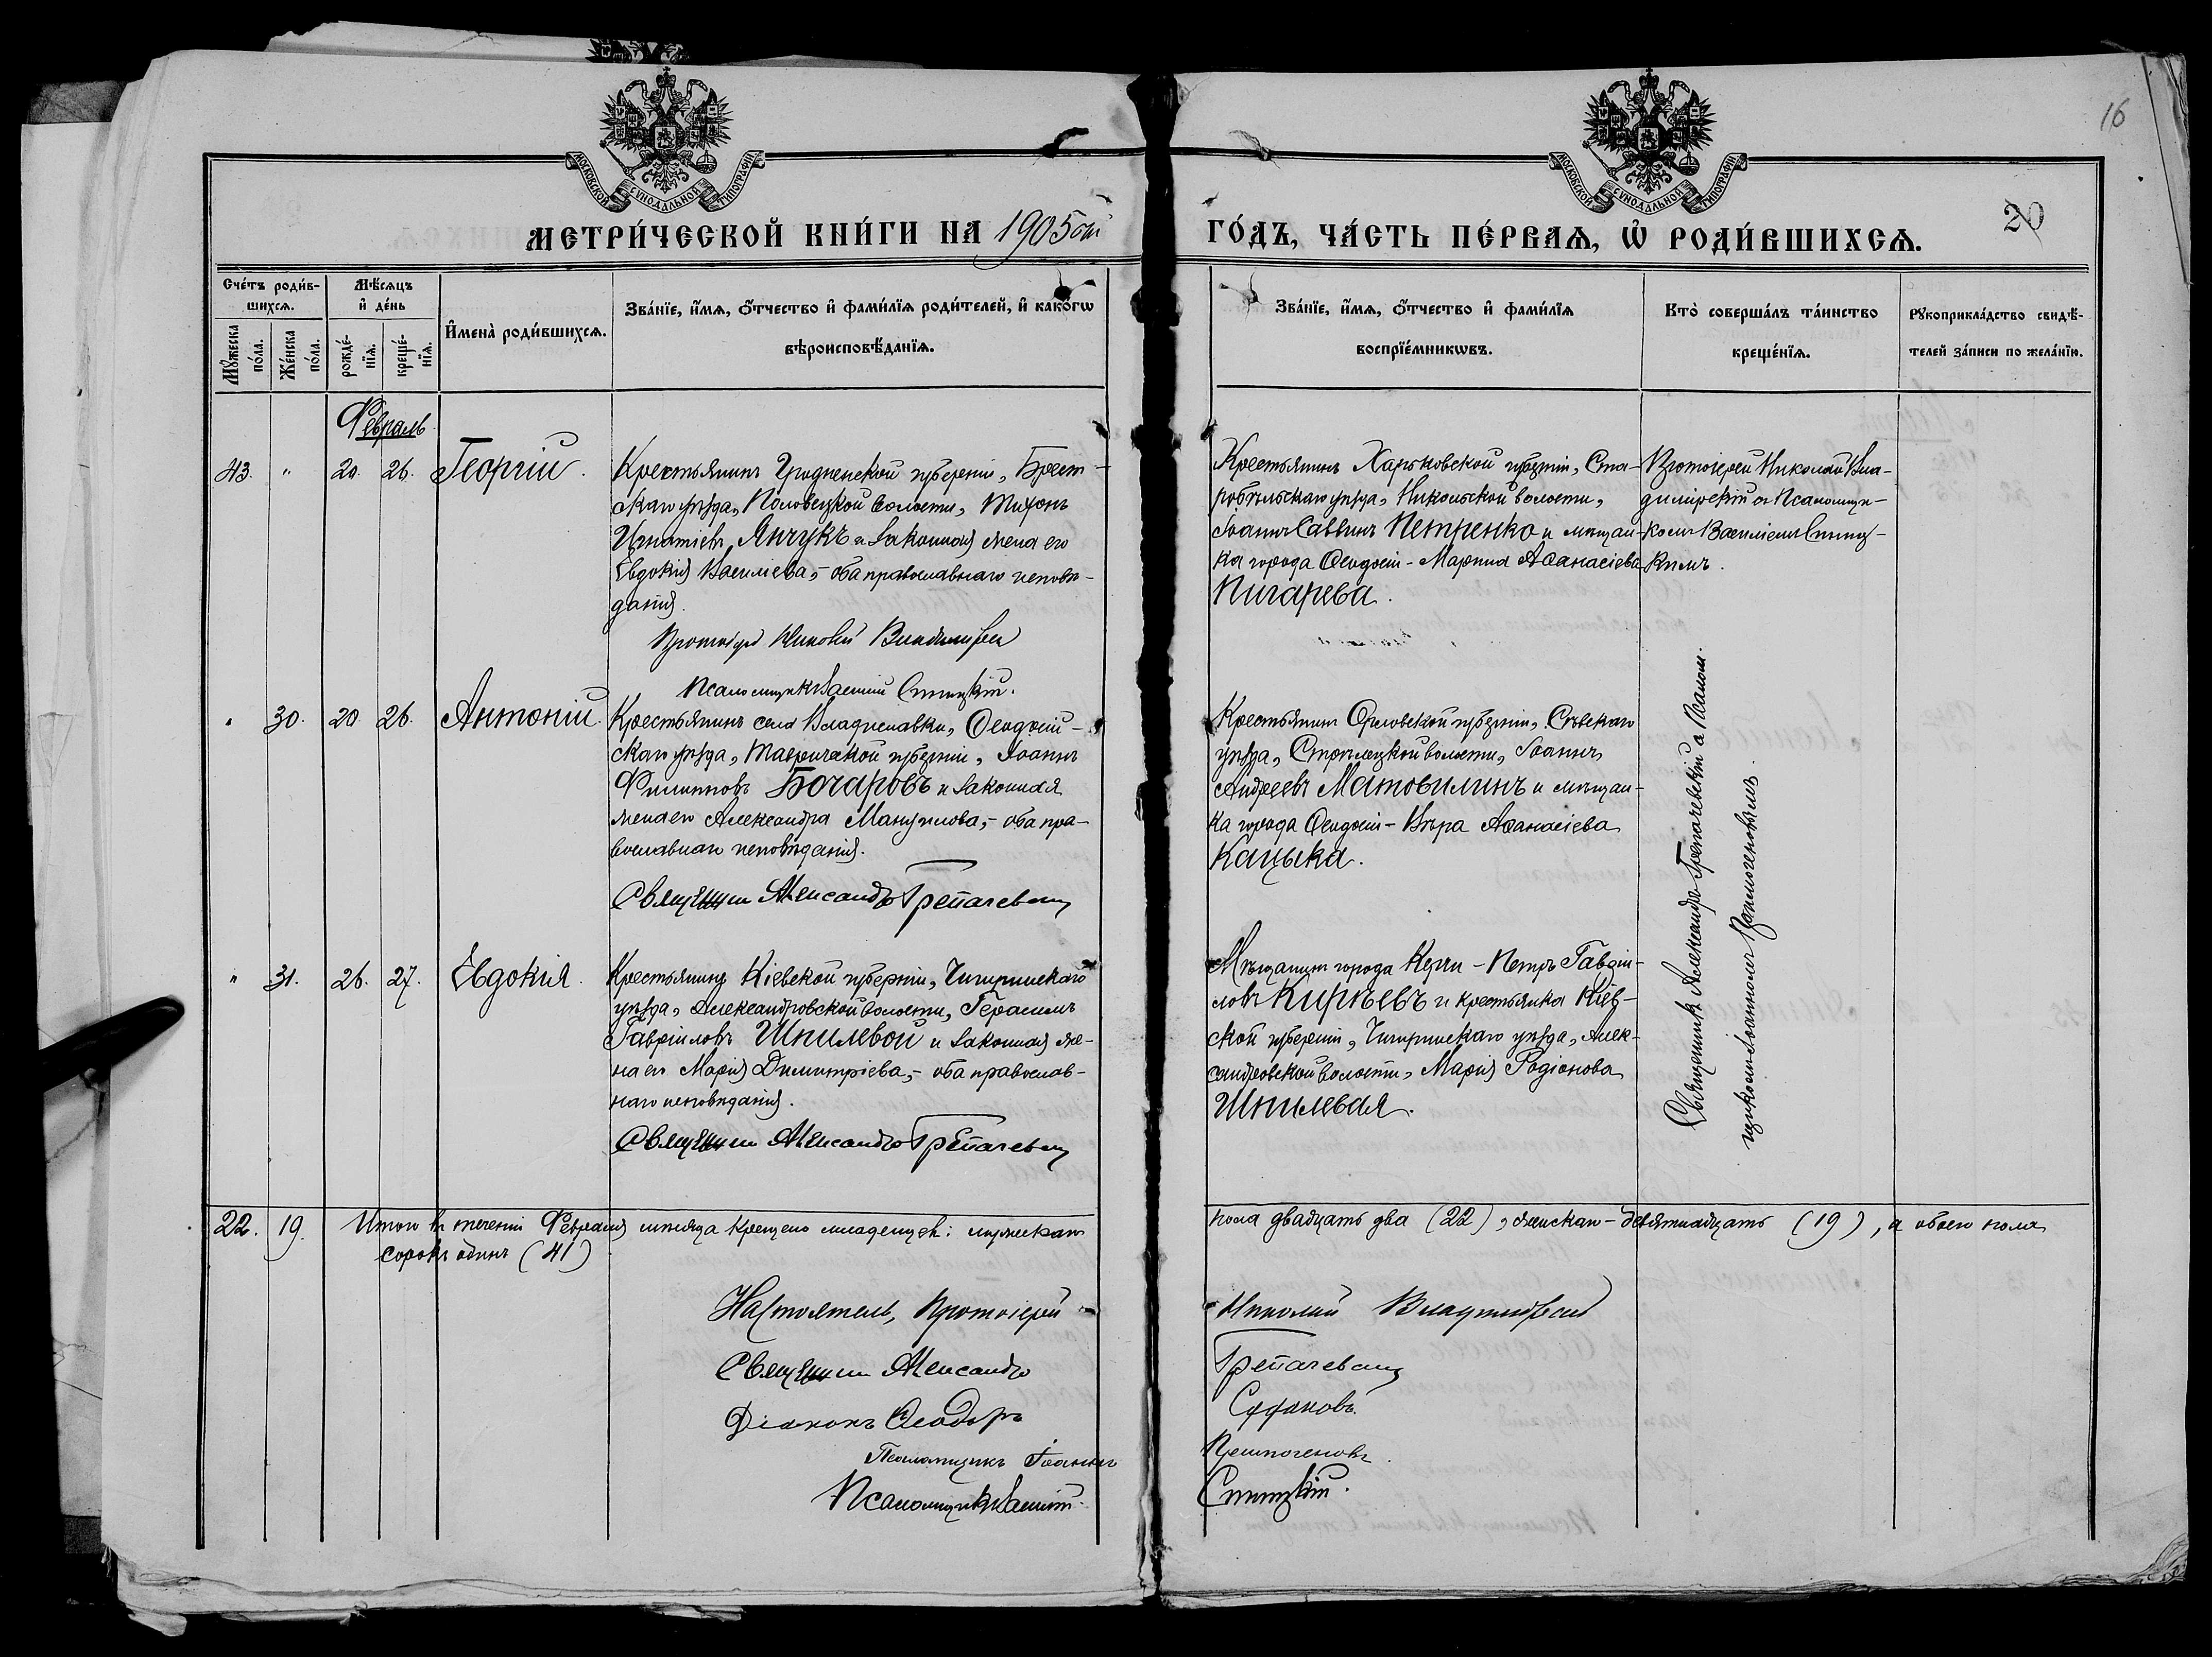 16
МОСКОВСКОЙ СѴНОДАЛЬНОЙ ТИПОГРАФІИ
МОСКОВСКОЙ СѴНОДАЛЬНОЙ ТИПОГРАФІИ
МЕТРИ́ЧЕСКОЙ КНИ́ГИ НА 1905ый ГО́ДЪ, ЧА́СТЬ ПЕ́РВАѦ, Ѡ҆ РОДИ́ВШИХСѦ.
20
Сче́тъ роди́в-
шихсѧ.
Мꙋ́жеска по́ла.
Же́нска по́ла.
Мѣ́сѧцъ
и҆ де́нь
рожде́-
нїѧ.
креще́-
нїѧ.
И҆мена̀ роди́вшихсѧ.
Зва́нїе, и҆́мѧ, ѻ҆́тчество и҆ фами́лїѧ роди́телей, и҆ како́гѡ
вѣроисповѣ́данїѧ.
Зва́нїе, и҆́мѧ, ѻ҆́тчество и҆ фами́лїѧ
воспрїе́мникѡвъ.
Кто̀ соверша́лъ та́инство
креще́нїѧ.
Рꙋкоприкла́дство свидѣ́-
телей за́писи по жела́нїю.
Февраль
43. " 20. 26. Георгій.
Крестьянинъ Гродненской губерніи, Брест-
скаго уѣзда, Половецкой волости, Тихонъ
Игнатіевъ Янчукъ и законная жена его
Евдокія Василіева, - оба православнаго исповѣ-
данія.
Протоіерей Николай Владимірскій
Псаломщикъ Василій
Крестьянинъ Харьковской губерніи, Ста-
робѣльскаго уѣзда, Никольской волости,
Іоаннъ Саввинъ Петренко и мѣщан-
ка города Ѳеодосіи - Марина Аѳанасіева
Пигарева.
Протоіерей Николай Вла-
димірскій съ Псаломщи-
комъ Василіемъ
" 30. 20. 26. Антоній.
Крестьянинъ села Владиславки, Ѳеодосій-
скаго уѣзда, Таврической губерніи, Іоаннъ
Филипповъ Бочаровъ и законная
жена его Александра Мануилова, - оба пра-
вославнаго исповѣданія.
Священникъ Александръ
Крестьянинъ Орловской губерніи, Сѣвскаго
уѣзда, Стрѣлецкой волости, Іоаннъ
Андреевъ Матовилинъ и мѣщан-
ка города Ѳеодосіи - Вѣра Аѳанасіева
Кацыка.
Священникъ Александръ съ Псалом.
щикомъ Іоанномъ
" 31. 26. 27. Евдокія.
Крестьянинъ Кіевской губерніи, Чигиринскаго
уѣзда, Александровской волости, Герасимъ
Гавріиловъ Шпилевой и законная же-
на его Марія Димитріева, - оба православ-
наго исповѣданія.
Священникъ Александръ
Мѣщанинъ города Керчи - Петръ Гавріи-
ловъ Кирѣевъ и крестьянка Кіев-
ской губерніи, Чигиринскаго уѣзда, Алек-
сандровской волости, Марія Родіонова
Шпилевая.
22. 19. Итого въ теченіи Февраля мѣсяца крещено младенцевъ: мужескаго пола двадцать два (22), женскаго - девятнадцать (19), а обоего пола
сорокъ одинъ (41)
Настоятель, Протоіерей Николай Владимірскій
Священникъ Александръ
Діаконъ Ѳеодоръ
Псаломщикъ Іоаннъ
Псаломщикъ Василій